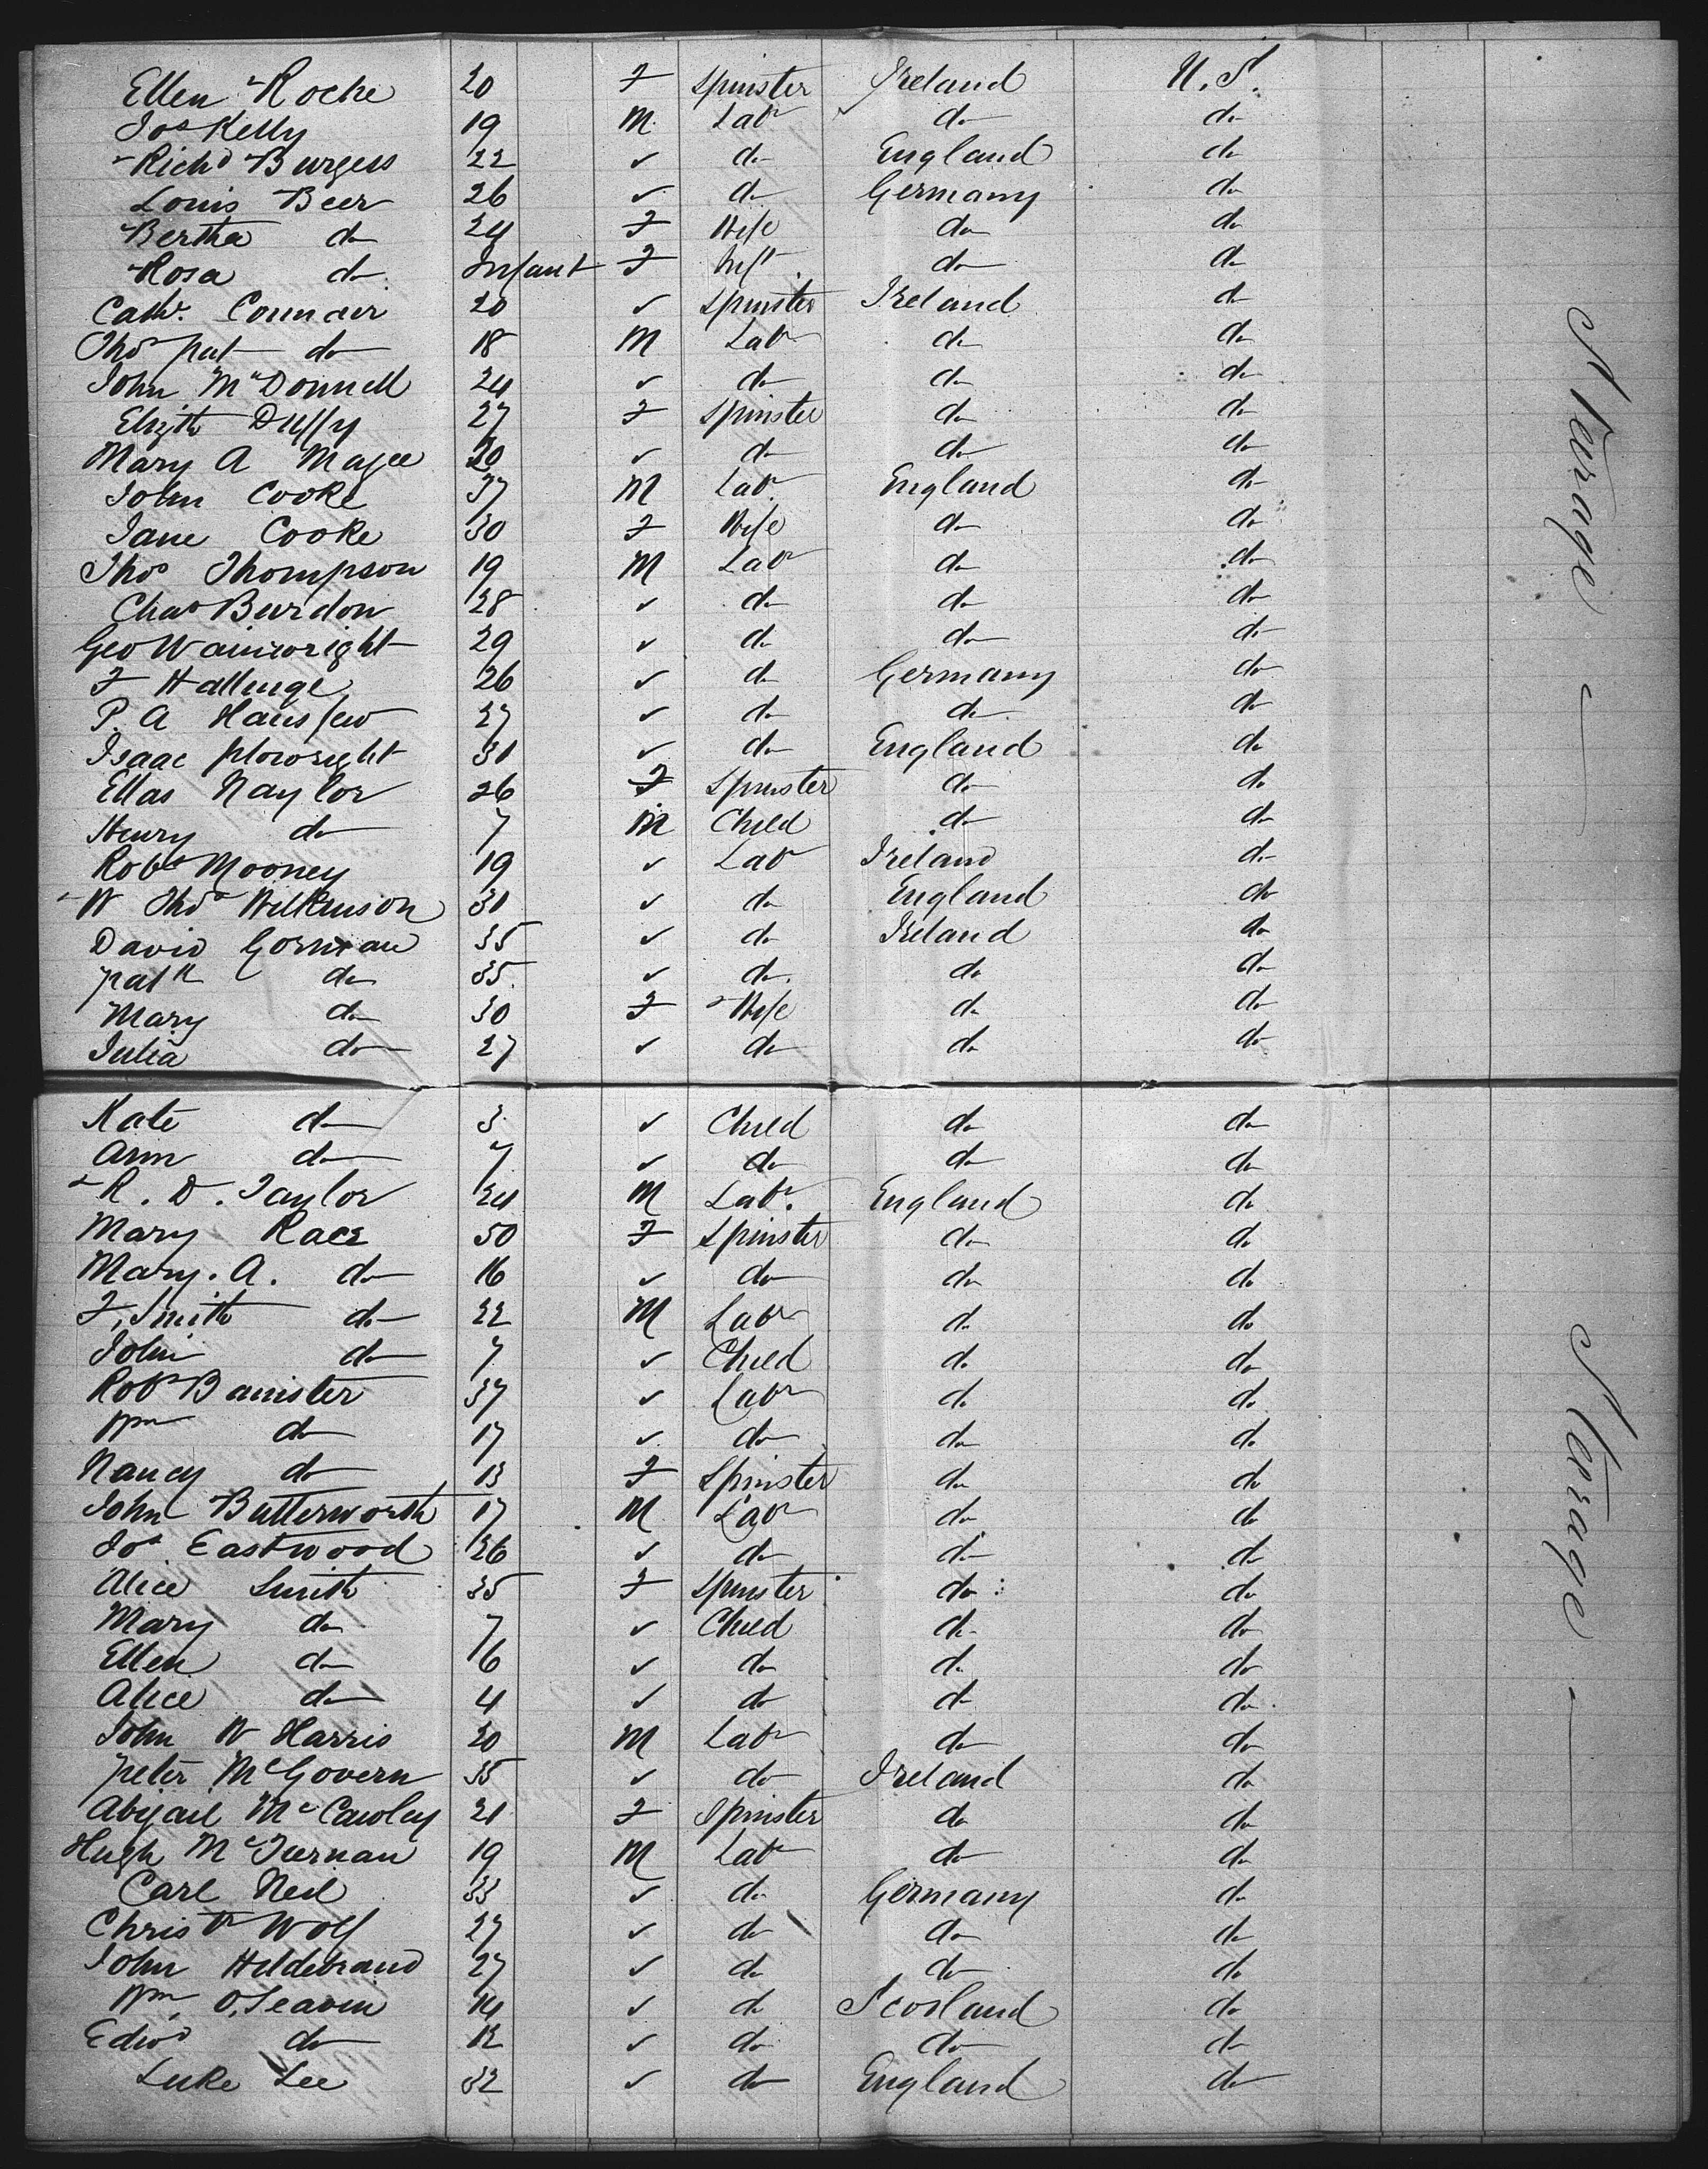 Ellen Roche 20 F Spinster Ireland U.S.
Jos Kelly 19 M Labr do do
Richd Burgess 22 ✓ do England do
Louis Beer 26 ✓ do Germany do
Bertha do 24 F Wife do do
Rosa do Infant F Inft do do
Cath. Connair 20 ✓ Spinster Ireland do
Thos pat do 18 M Labr do do
John McDonnell 24 ✓ do do do
Elizth Duffy 27 F Spinster do do
Mary A Magee 20 ✓ do do do
John Cooke 37 M Labr England do
Jane Cooke 30 F Wife do do
Thos Thompson 19 M Labr do do
Chas Burdon 28 ✓ do do do
Geo Wainwright 29 ✓ do do do
F Hallinge 26 ✓ do Germany do
P. A 27 ✓ do do do
Isaac plowright 31 ✓ do England do
Ellas Naylor 26 F Spinster do do
Henry do 7 M Child do do
Robt Mooney 19 ✓ Labr Ireland do
W Thos Wilkinson 31 ✓ do England do
David Gorman 35 ✓ do Ireland do
patk do 35 ✓ do do do
Mary do 30 F Wife do do
Julia do 27 ✓ do do do
Sterage
Kate do 3 ✓ Child do do
Ann do 7 ✓ do do do
R. D. Taylor 24 M Labr. England do
Mary Race 50 F Spinster do do
Mary. A. do 16 ✓ do do do
F, Smith do 22 M Labr do do
John do 7 ✓ Child do do
Robt Banister 37 ✓ Labr do do
Wm do 17 ✓ do do do
Nancy do 13 F Spinster do do
John Butterworth 17 M Labr do do
Jos Eastwood 26 ✓ do do do
Alice Smith 35 F Spinster do do
Mary do 7 ✓ Child do do
Ellen do 6 ✓ do do do
Alice do 4 ✓ do do do
John W Harris 20 M Labr do do
peter McGovern 35 ✓ do Ireland do
Abigail McCawley 21 F Spinster do do
Hugh McTiernan 19 M Labr do do
Carl Neil 33 ✓ do Germany do
Christn Wolf 27 ✓ do do do
John Hildebrand 27 ✓ do do do
Wm 14 ✓ do Scotland do
Edwd do 12 ✓ do do do
Luke Lee 32 ✓ do England do
Sterage